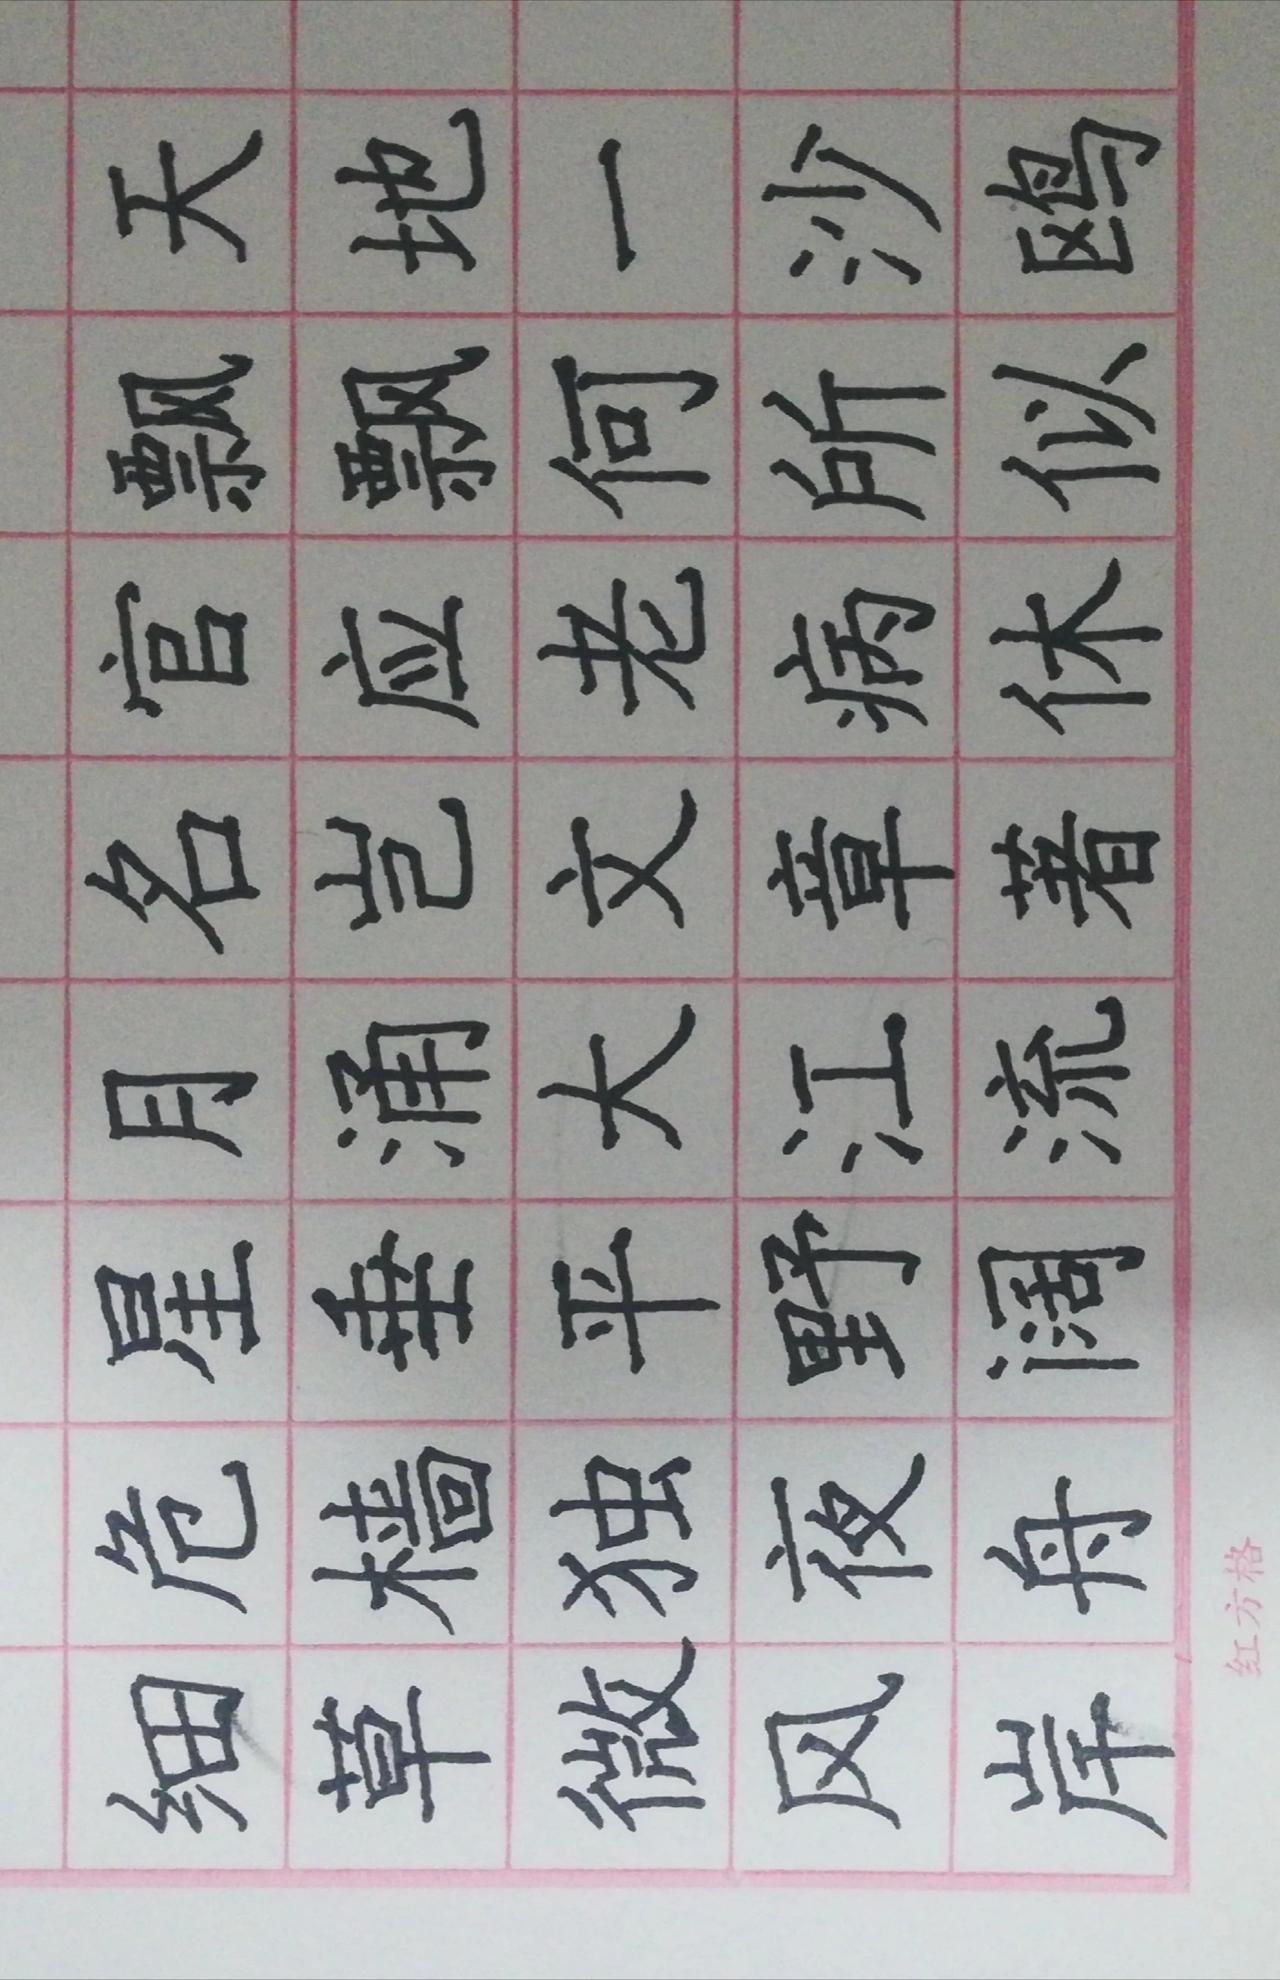 细草微风岸
危樯独夜舟
星垂平野阔
月涌大江流
名岂文章著
官应老病休
飘飘何所似
天地一沙鸥
红方格